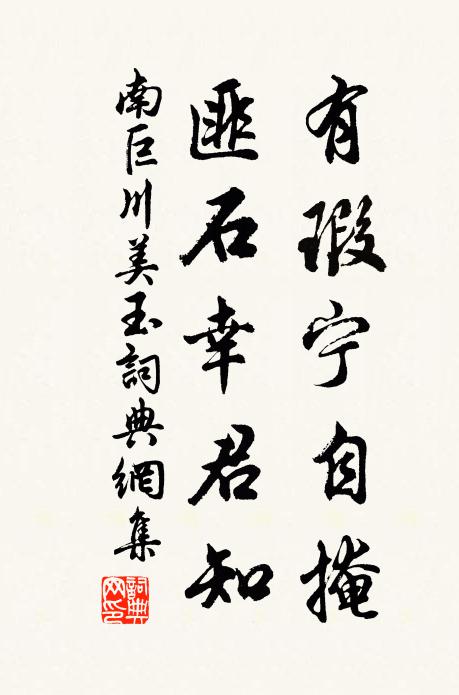 有瑕宁自掩
匪石幸君知
南巨川美玉詞典網集
詞典网印